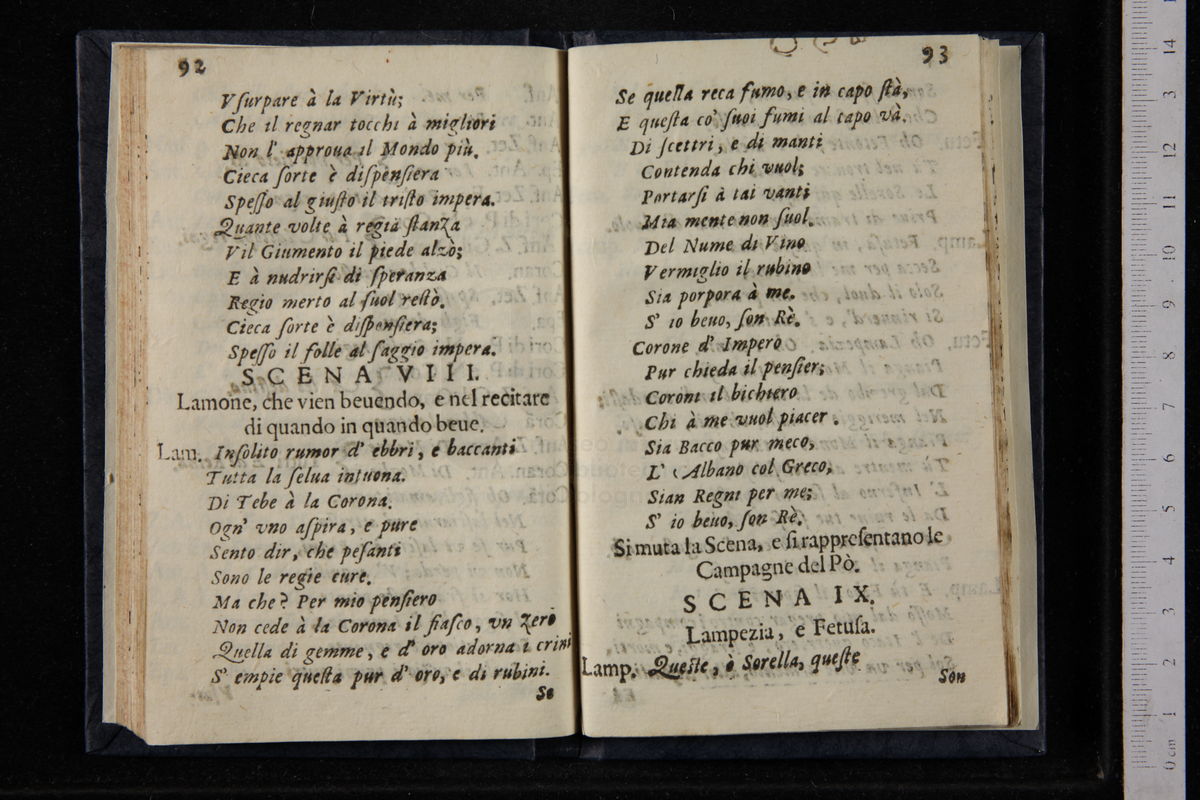 92
Vſurpare à la Virtù;
Che il regnar tocchi à migliori
Non l' approua il Mondo più.
Cieca ſorte è diſpenſiera
Speſſo al giuſto il triſto impera.
Quante volte à regia ſtanza
Vil Giumento il piede alzò;
E à nudrirſi di ſperanza
Regio merto al ſuol reſtò.
Cieca ſorte è diſpenſiera;
Speſſo il folle al ſaggio impera.
SCENA VIII.
Lamone, che vien beuendo, e nel recitare
di quando in quando beue.
Lam. Inſolito rumor d' ebbri, e baccanti
Tutta la ſelua intuona.
Di Tebe à la Corona.
Ogn' vno aſpira, e pure
Sento dir, che peſanti
Sono le regie cure.
Ma che? Per mio penſiero
Non cede à la Corona il fiaſco, vn Zero
Quella di gemme, e d' oro adorna i crini
S' empie queſta pur d' oro, e di rubini.
Se
93
Se quella reca fumo, e in capo ſtà,
E queſta co' ſuoi fumi al capo và.
Di ſcettri, e di manti
Contenda chi vuol;
Portarſi à tai vanti
Mia mente non ſuol.
Del Nume di Vino
Vermiglio il rubino
Sia porpora à me.
S' io beuo, ſon Rè.
Corone d' Impero
Pur chieda il penſier;
Coroni il bichiero
Chi à me vuol piacer.
Sia Bacco pur meco,
L' Albano col Greco,
Sian Regni per me;
S' io beuo, ſon Rè.
Si muta la Scena, e ſi rappreſentano le
Campagne del Pò.
SCENA IX.
Lampezia, e Fetuſa.
Lamp. Queſte, ò Sorella, queſte
Son
14
3
12
11
10
9
8
7
6
5
4
3
2
1
0 cm